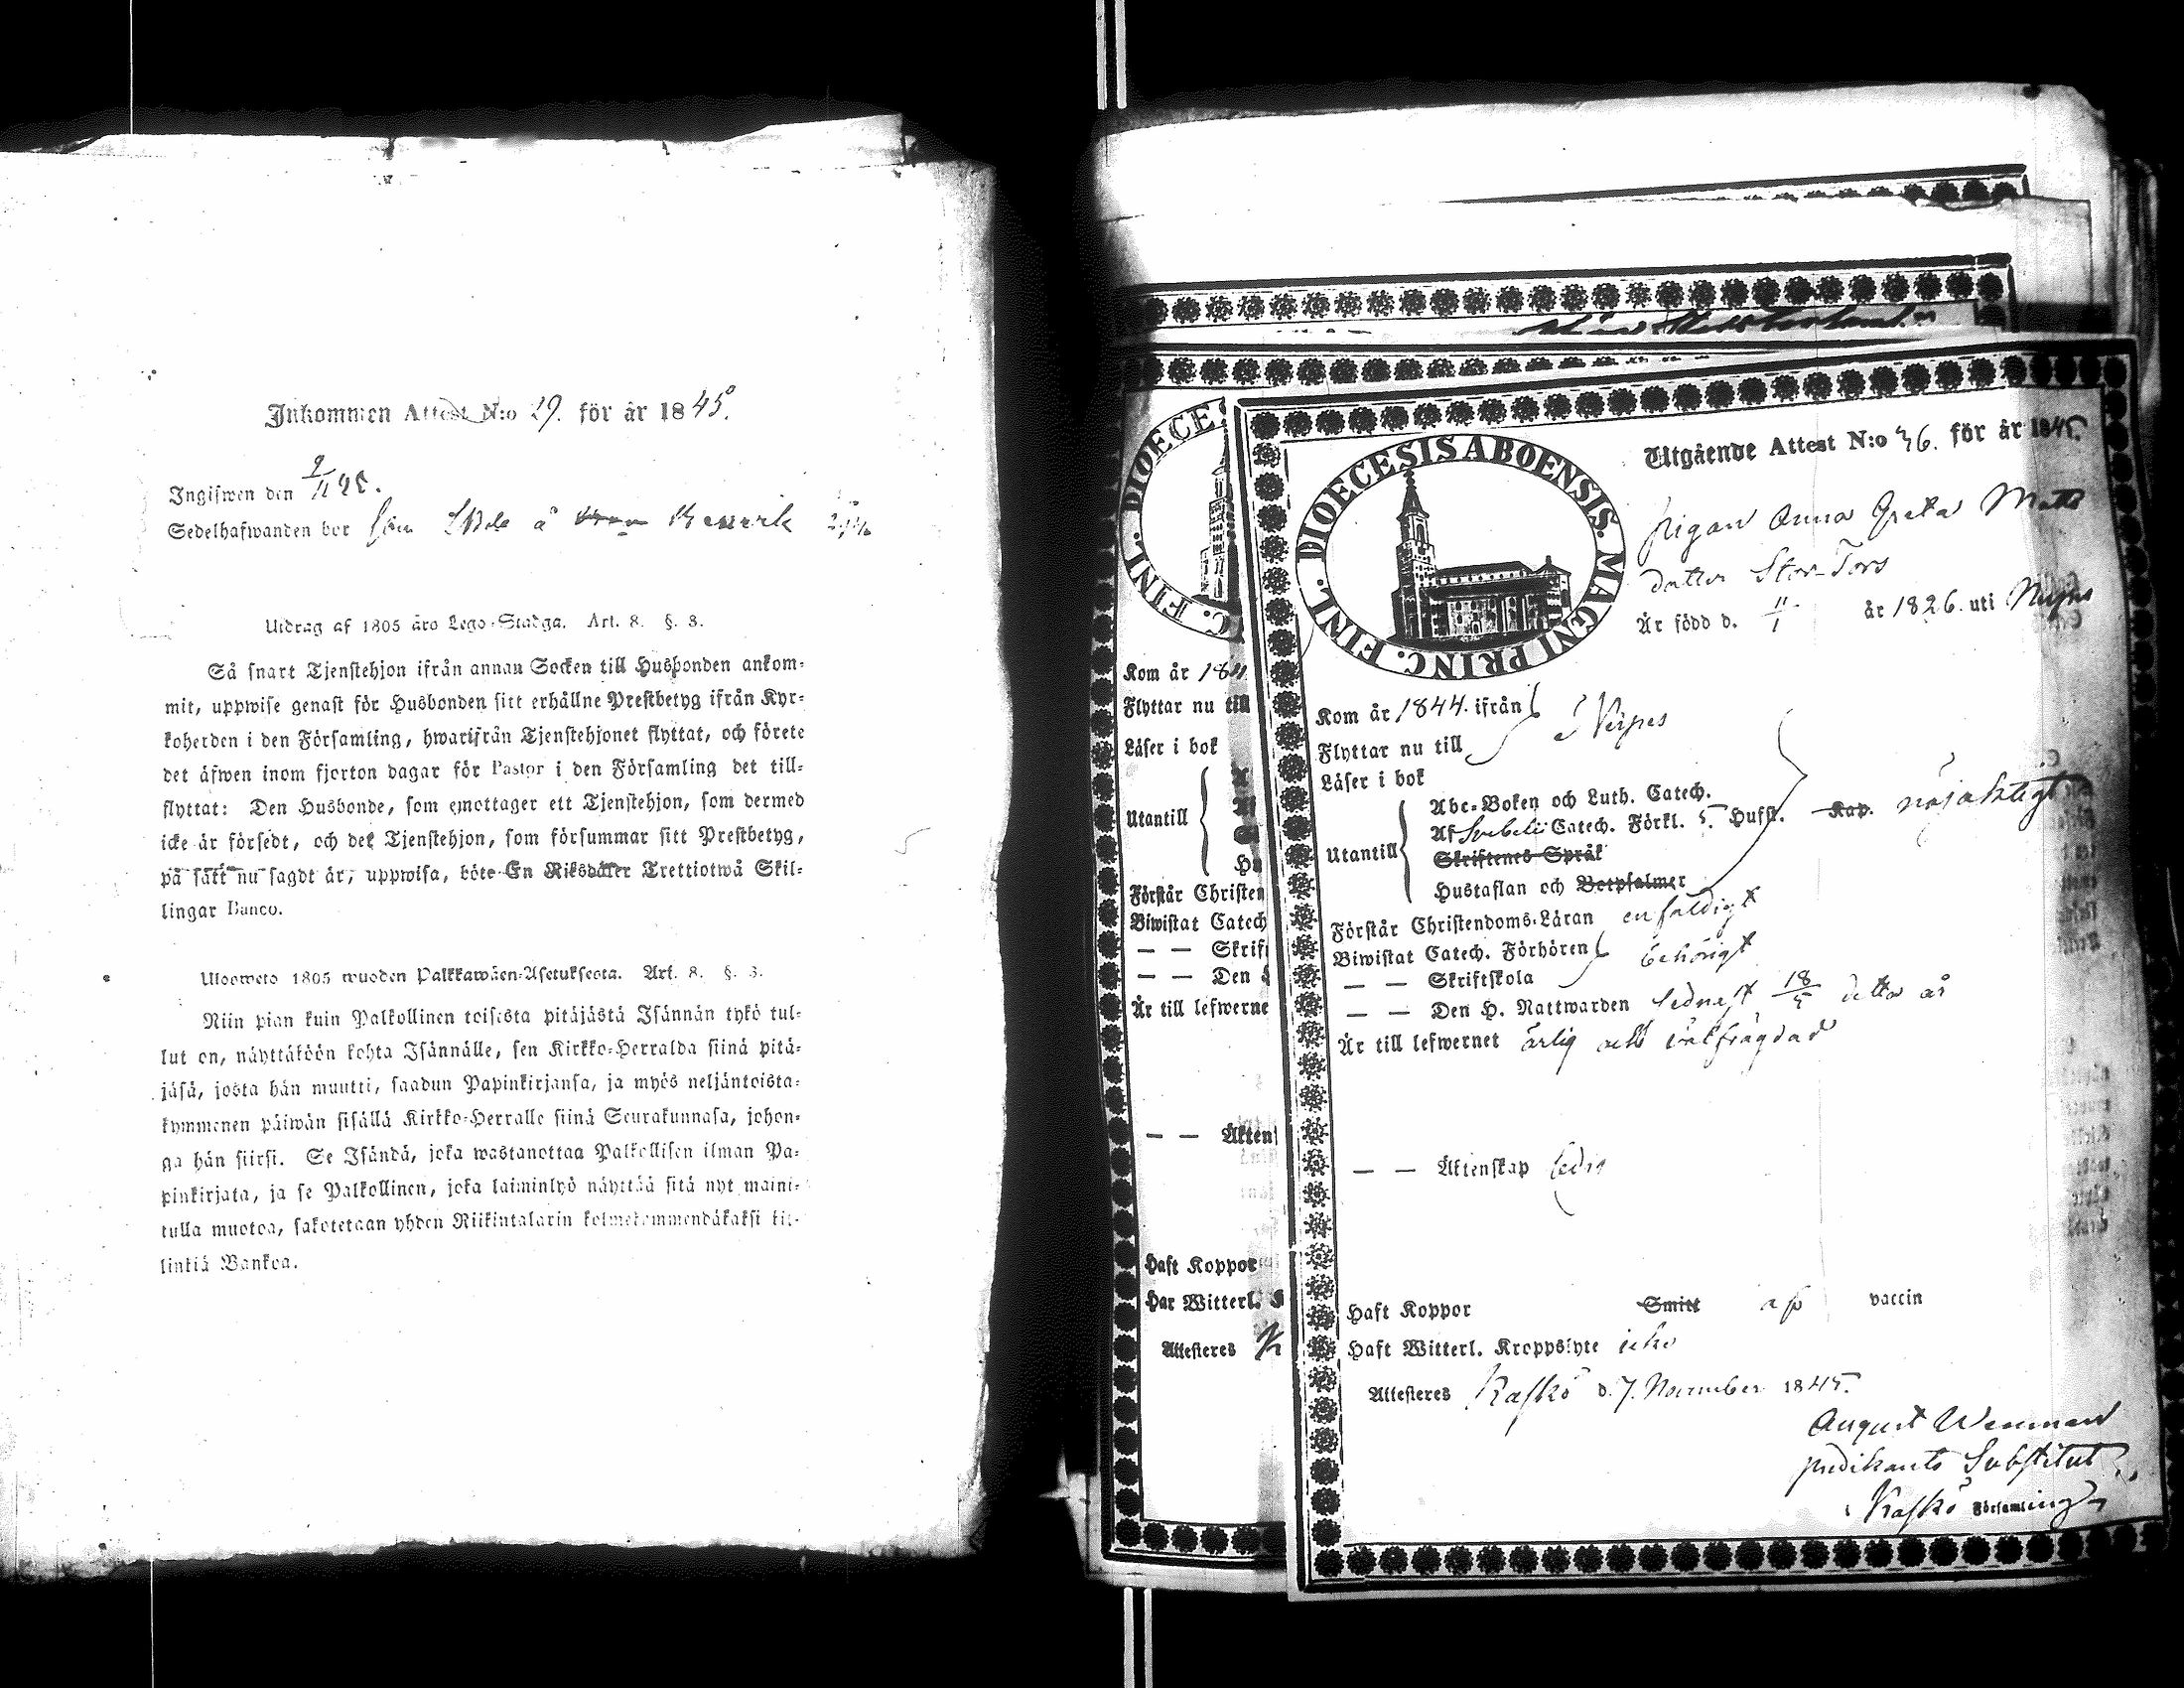 Inkommen Attest N:o 29. för år 1845.
Ingifwen den 9/11 45.
Sedelhafwanden bor
Utdrag af 1805 års Lego-Stadga. Art. 8. §. 3.
Så snart Tjenstehjon ifrån annan Socken till Husbonden ankom-
mit, uppwise genast för Husbonden sitt erhållne Prestbetyg ifrån Kyr-
koherden i den Församling, hwarifrån Tjenstehjonet flyttat, och förete
det äfwen inom fjorton dagar för Pastor i den Församling det till-
flyttat: Den Husbonde, som emottager ett Tjenstehjon, som dermed
icke är försedt, och det Tjenstehjon, som försummar sitt Prestbetyg,
på sätt nu sagdt är, uppwisa, böte En Riksdaler Trettiotwå Skil-
lingar Banco.
Uloosweto 1805 wuoden Palkkawäen-Asetuksesta. Art. 8. §. 3.
Niin pian kuin Palkollinen toisesta pitäjästä Isännän tykö tul-
lut on, näyttäköön kohta Isännälle, sen Kirkko-Herralda siinä pitä-
jäsä, josta hän muutti, saadun Papinkirjansa, ja myös neljäntoista-
kymmenen päiwän sisällä Kirkko-Herralle siinä Seurakunnasa, johon-
ga hän siirsi. Se Isändä, joka wastanottaa Palkollisen ilman Pa-
pinkirjata, ja se Palkollinen, joka laiminlyö näyttää sitä nyt maini-
tulla muotoa, sakotetaan yhden Riikintalarin kolmekymmendäkaksi kil-
linkiä Bankoa.
DIOECES
C. FINL.
Kom år 184
Flyttar nu till
Läser i bok
Utantill
Hu
Förstår Christen
Biwistat Catech
— — Skrift
— — Den H
Är till lefwerne
— — Äkten
Haft Koppor
Har Witterl. K
Attesteres K
DIOECESIS ABOENSIS. MAGNI PRINC. FINL.
Utgående Attest N:o 36. för år 1845.
Pigan Anna Greta Matts
dotter Stor-Tors
Är född d. 11/1 år 1826. uti Nerpes
Kom år 1844. ifrån
Flyttar nu till Nerpes
Läser i bok
Utantill
Abc-Boken och Luth. Catech.
Af Svebelii Catech. Förkl. 5. Hufst. Kap. nöjaktigt
Skriftenes Språk
Hustaflan och Botpsalmer
Förstår Christendoms-Läran enfaldigt
Biwistat Catech. Förhören behörigt
— — Skriftskola
— — Den H. Nattwarden sednast 18/5 detta år
Är till lefwernet ärlig och välfrägdad
— — Äktenskap ledig
Haft Koppor Smitt af vaccin
Haft Witterl. Kroppslyte icke
Attesteres Kaskö d. 7. November 1845.
August Wenman
predikants Substitut
i Kaskö Församling